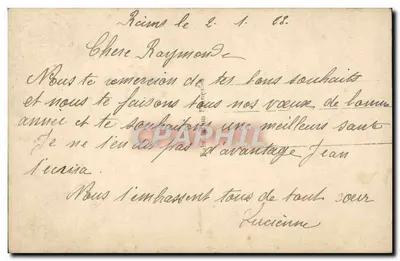 Reims le 2. 1. 08.
Chere Raymonde
Nous te remercion de tes bons souhaits
et nous te faisons tous nos vœux de bonne
année et te souhaitons une meilleurs santé
Je ne t'en dis pas d'avantage Jean
t'ecrira.
Nous t'embrassent tous de tout cœur
Lucienne
CPAPHIL